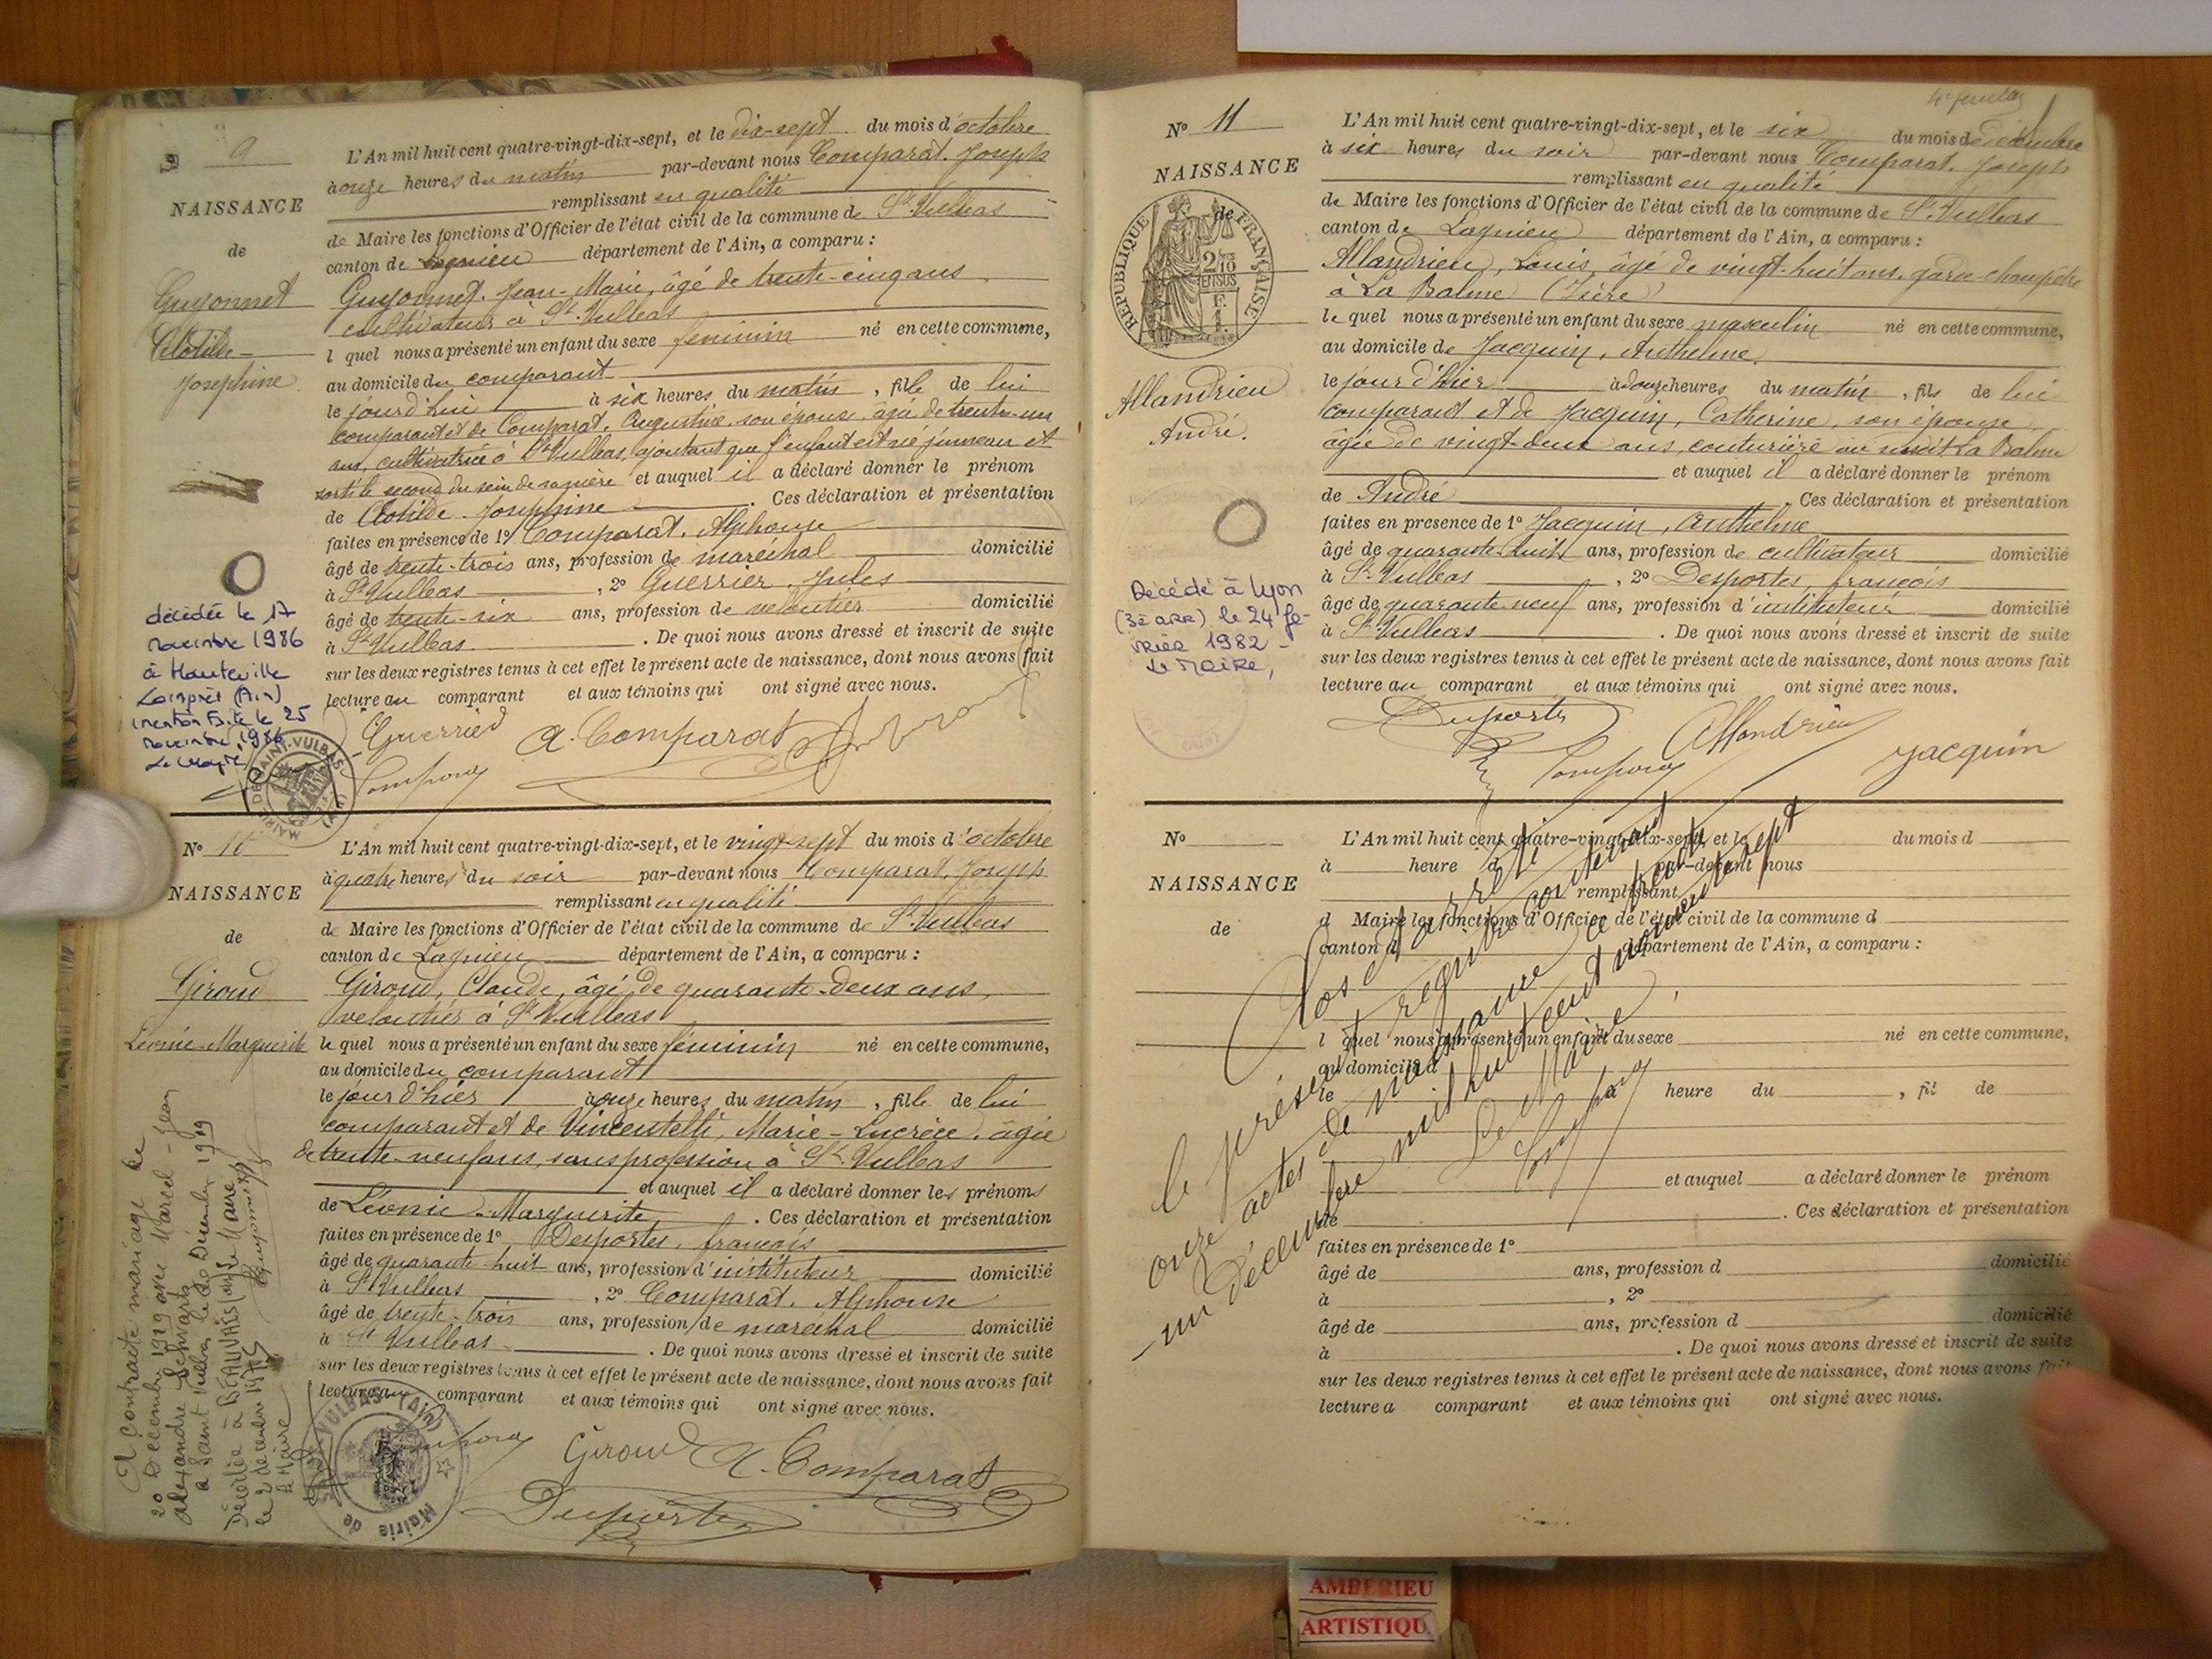 No 9
NAISSANCE
de
Guyonnet
Clotilde-
Josephine
L'An mil huit cent quatre-vingt-dix-sept, et le dix-sept du mois d'octobre
à onze heures du matin par-devant nous Comparat, Joseph
remplissant en qualité
de Maire les fonctions d'Officier de l'état civil de la commune de St Vulbas
canton de Lagnieu département de l'Ain, a comparu :
Guyonnet, Jean-Marie, âgé de trente-cinq ans
cultivateur à St. Vulbas
l quel nous a présenté un enfant du sexe féminin né en cette commune,
au domicile du comparant
le jour d'hui à six heures du matin, fille de lui
comparant et de Comparat, Augustine, son épouse, âgée de trente-un
ans, cultivatrice à St Vulbas, ajoutant que l'enfant est né jumeau et
sorti le second du sein de sa mère et auquel il a déclaré donner le prénom
de Clotilde-Josephine. Ces déclaration et présentation
faites en présence de 1° Comparat, Alphonse
âgé de trente-trois ans, profession de maréchal domicilié
à St Vulbas, 2° Guerrier, Jules
âgé de trente-six ans, profession de veloutier domicilié
à St Vulbas. De quoi nous avons dressé et inscrit de suite
sur les deux registres tenus à cet effet le présent acte de naissance, dont nous avons fait
lecture au comparant et aux témoins qui ont signé avec nous.
Guerrier A. Comparat
décédée le 17
novembre 1986
à Hauteville
Lompnès (Ain)
mention faite le 25
novembre 1986
Le Maire,
MAIRIE DE SAINT-VULBAS (Ain)
No 10
NAISSANCE
de
Giroud
Léonie-Marguerite
L'An mil huit cent quatre-vingt-dix-sept, et le vingt-sept du mois d'octobre
à quatre heures du soir par-devant nous Comparat, Joseph
remplissant en qualité
de Maire les fonctions d'Officier de l'état civil de la commune de St Vulbas
canton de Lagnieu département de l'Ain, a comparu :
Giroud, Claude, âgé de quarante-deux ans,
veloutier à St Vulbas
le quel nous a présenté un enfant du sexe féminin né en cette commune,
au domicile du comparant
le jour d'hier à onze heures du matin, fille de lui
comparant et de Vincentelli, Marie-Lucrèce, âgée
de trente-neuf ans, sans profession à St. Vulbas
et auquel il a déclaré donner les prénoms
de Léonie-Marguerite. Ces déclaration et présentation
faites en présence de 1° Desportes, françois
âgé de quarante-huit ans, profession d'instituteur domicilié
à St Vulbas, 2° Comparat, Alphonse
âgé de trente-trois ans, profession de maréchal domicilié
à St Vulbas. De quoi nous avons dressé et inscrit de suite
sur les deux registres tenus à cet effet le présent acte de naissance, dont nous avons fait
lecture au comparant et aux témoins qui ont signé avec nous.
Giroud A. Comparat
Desportes
A contracté mariage le
20 Decembre 1919 avec Marcel-Jean
Alexandre Schvartz
à Saint Vulbas, le 20 Décembre 1919
Le Maire
Décédée à BEAUVAIS (oise)
le 2 décembre
Le Maire
Mairie de ST VULBAS (Ain)
No 11
NAISSANCE
de
RÉPUBLIQUE FRANÇAISE
2/10 EN SUS
F. 1.
Allandrieu
André.
L'An mil huit cent quatre-vingt-dix-sept, et le six du mois de décembre
à six heures du soir par-devant nous Comparat, Joseph
remplissant en qualité
de Maire les fonctions d'Officier de l'état civil de la commune de St. Vulbas
canton de Lagnieu département de l'Ain, a comparu :
Allandrieu, Louis, âgé de vingt-huit ans, garde-champêtre
à La Balme (Isère)
le quel nous a présenté un enfant du sexe masculin né en cette commune,
au domicile de Jacquin, Anthelme
le jour d'hier à douze heures du matin, fils de lui
comparant et de Jacquin, Catherine, son épouse
âgée de vingt-deux ans, couturière au susdit La Balme
et auquel il a déclaré donner le prénom
de André. Ces déclaration et présentation
faites en présence de 1° Jacquin, Anthelme
âgé de quarante-huit ans, profession de cultivateur domicilié
à St. Vulbas, 2° Desportes, françois
âgé de quarante-neuf ans, profession d'instituteur domicilié
à St. Vulbas. De quoi nous avons dressé et inscrit de suite
sur les deux registres tenus à cet effet le présent acte de naissance, dont nous avons fait
lecture au comparant et aux témoins qui ont signé avec nous.
Desportes Allandrieu
Jacquin
Décédé à Lyon
(3è arr) le 24 fé-
vrier 1982 -
Le Maire,
No
NAISSANCE
de
L'An mil huit cent quatre-vingt-dix-sept, et le du mois d
à heure d par-devant nous
remplissant
d Maire les fonctions d'Officier de l'état civil de la commune d
canton d département de l'Ain, a comparu :
l quel nous a présenté un enfant du sexe né en cette commune,
au domicile d
le à heure du , fil de
et auquel a déclaré donner le prénom
de . Ces déclaration et présentation
faites en présence de 1°
âgé de ans, profession d domicilié
à , 2°
âgé de ans, profession d domicilié
à . De quoi nous avons dressé et inscrit de suite
sur les deux registres tenus à cet effet le présent acte de naissance, dont nous avons fait
lecture a comparant et aux témoins qui ont signé avec nous.
Clos et arrêté
le présent registre contenant
onze actes de naissance ce trente
-un décembre mil huit cent nonante sept
Le Maire
AMBERIEU
ARTISTIQU